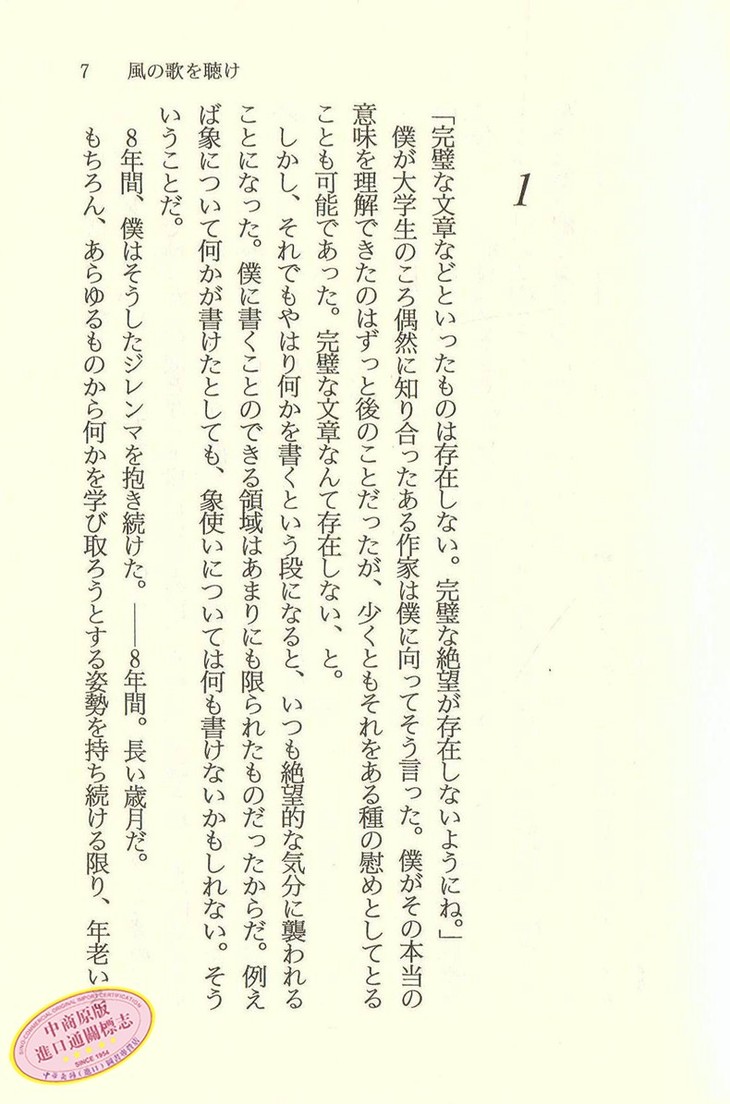 7 風の歌を聴け
1
「完璧な文章などといったものは存在しない。完璧な絶望が存在しないようにね。」
僕が大学生のころ偶然に知り合ったある作家は僕に向ってそう言った。僕がその本当の
意味を理解できたのはずっと後のことだったが、少くともそれをある種の慰めとしてとる
ことも可能であった。完璧な文章なんて存在しない、と。
しかし、それでもやはり何かを書くという段になると、いつも絶望的な気分に襲われる
ことになった。僕に書くことのできる領域はあまりにも限られたものだったからだ。例え
ば象について何かが書けたとしても、象使いについては何も書けないかもしれない。そう
いうことだ。
8年間、僕はそうしたジレンマを抱き続けた。――8年間。長い歳月だ。
もちろん、あらゆるものから何かを学び取ろうとする姿勢を持ち続ける限り、年老い
中商原版
進口通關標志
SINCE 1954